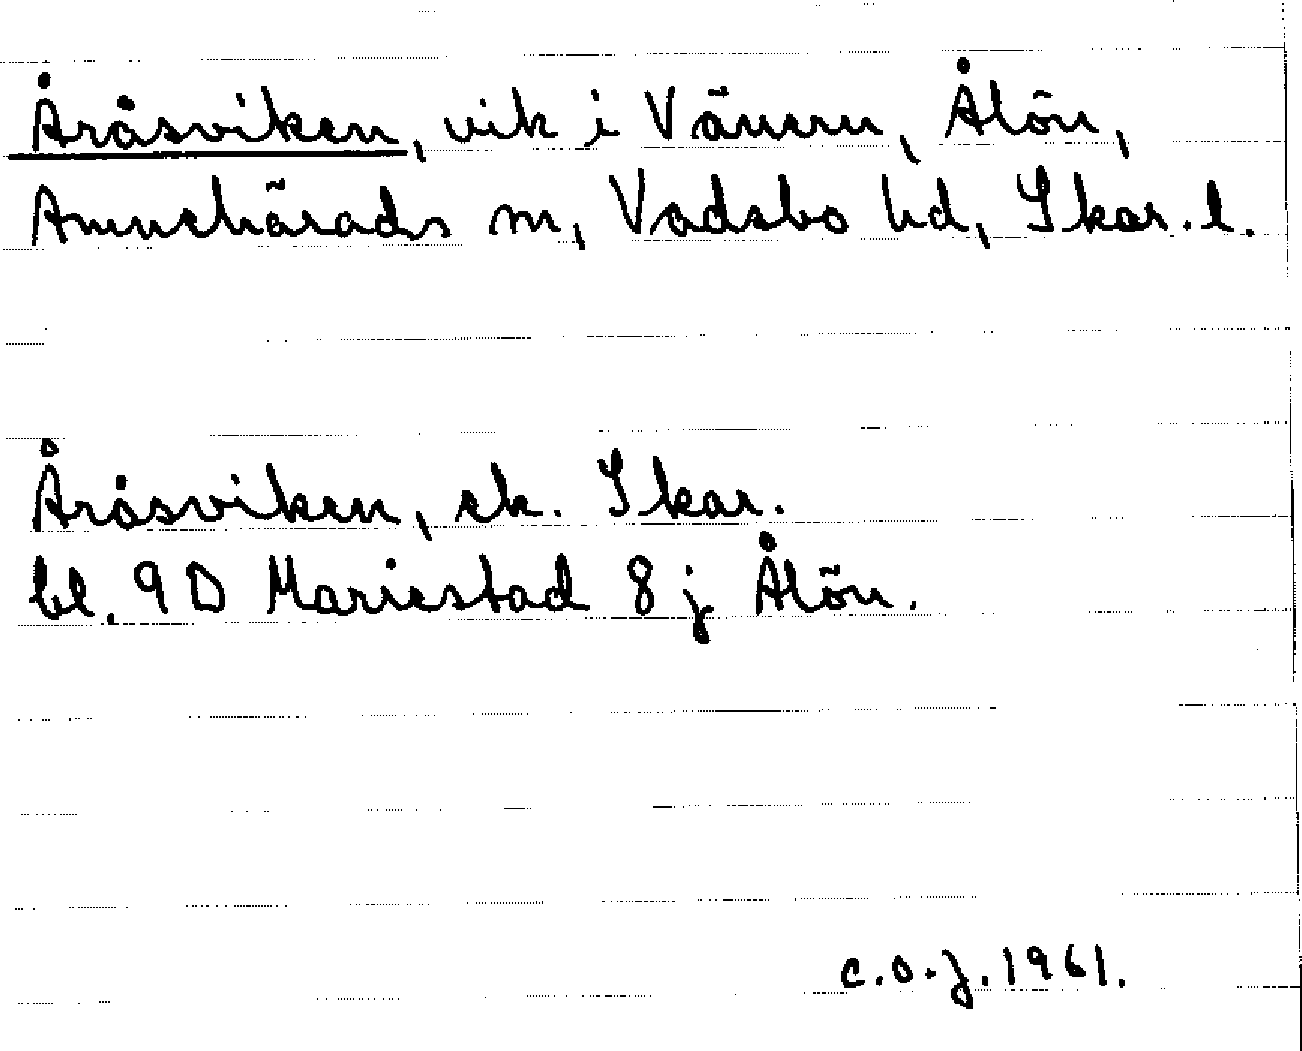 Åråsviken, vik i Vänern, Ålön,
Amnehärads sn, Vadsbo hd, Skar. l.
Åråsviken, ek. Skar.
bl. 9D Mariestad 8 j Ålön.
C.O.J. 1961.